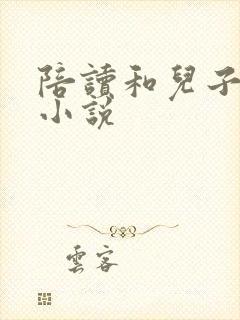 陪讀和兒子
小說
雲客